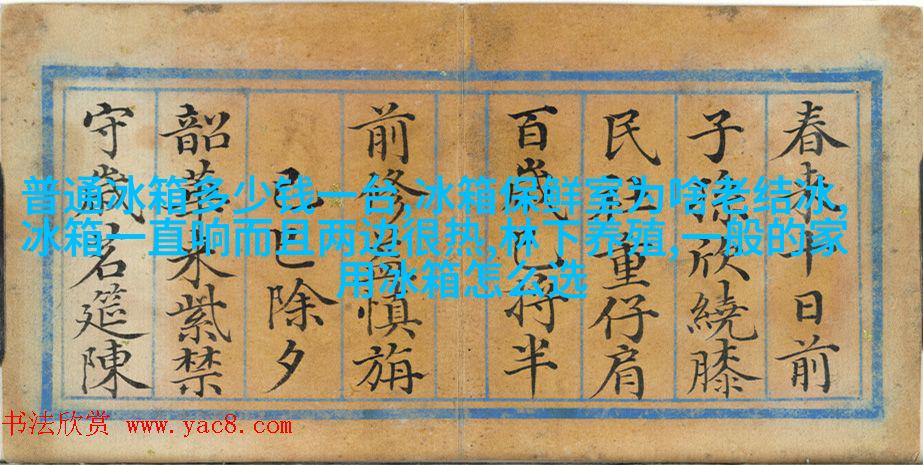 普通冰箱多少钱一台,冰箱保鲜室为啥老结冰,
冰箱一直响而且两边很热,林下养殖,一般的家
用冰箱怎么选
春来十日前
子孫欣繞膝
民社重仔肩
百歲已将半
前修益慎旃
己巳除夕
韶華来紫禁
守歲名筵陳
书法欣赏 www.yac8.com